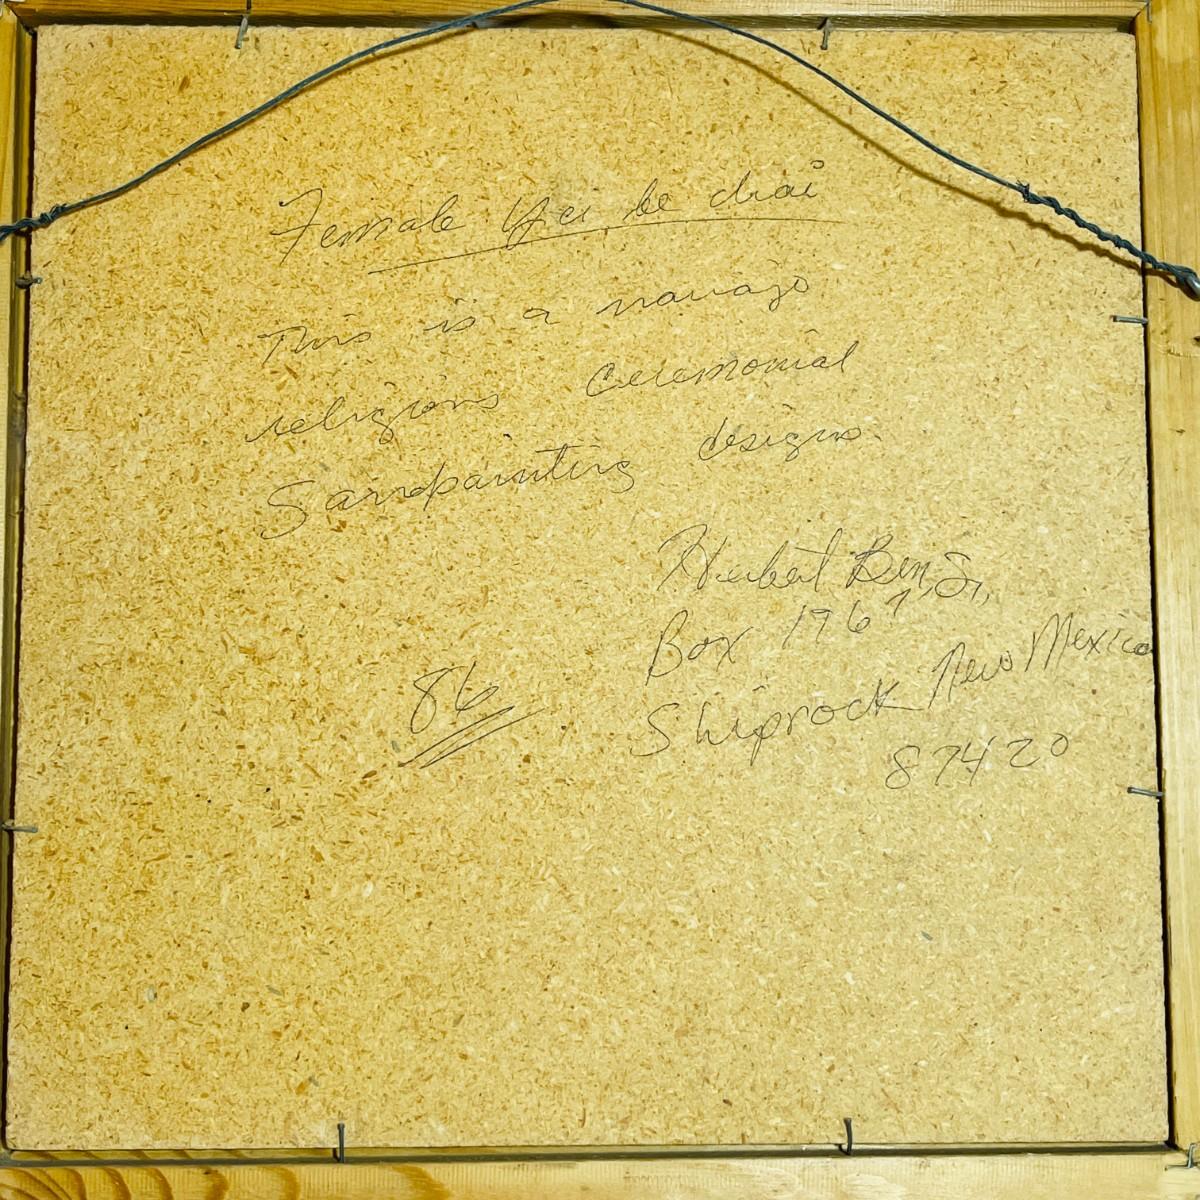 Female Yei be chai
This is a navajo
religions Ceremonial
Sandpainting designs.
Herbert Ben, Sr.,
Box 1967
86
Shiprock New Mexico
87420